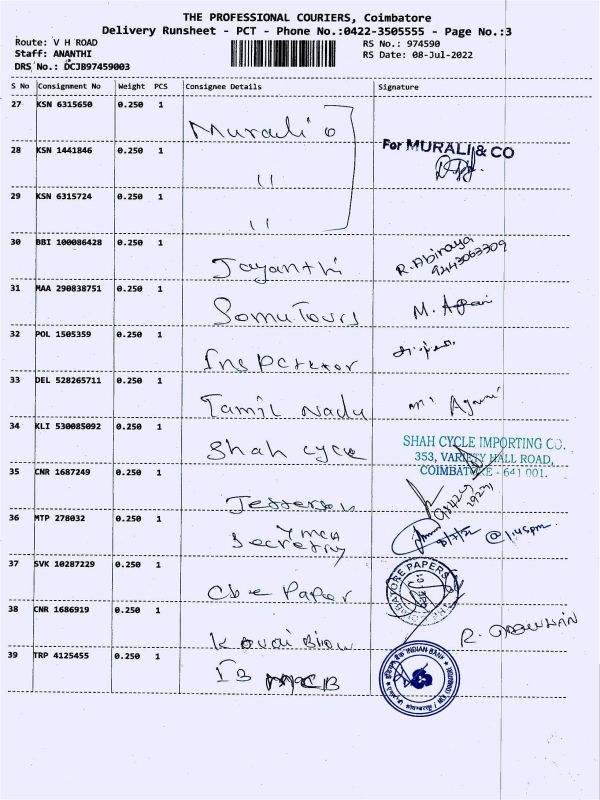 THE PROFESSIONAL COURIERS, Coimbatore
Delivery Runsheet - PCT - Phone No.:0422-3505555 - Page No.:3
Route: V H ROAD RS No.: 974590
Staff: ANANTHI RS Date: 08-Jul-2022
DRS No.: DCJB97459003
S No Consignment No Weight PCS Consignee Details Signature
27 KSN 6315650 0.250 1 Murali
28 KSN 1441846 0.250 1 " For MURALI & CO
29 KSN 6315724 0.250 1 "
30 BBI 100086428 0.250 1 Jayanthi R. Abinaya
31 MAA 290838751 0.250 1 Somu Tours M.
32 POL 1505359 0.250 1
33 DEL 528265711 0.250 1 Tamil Nadu
34 KLI 530085092 0.250 1 Shah Cycle SHAH CYCLE IMPORTING CO.
353, VARIETY HALL ROAD,
COIMBATORE - 641 001.
35 CNR 1687249 0.250 1
36 MTP 278032 0.250 1 YMCA @ 1.45pm
37 SVK 10287229 0.250 1 Cbe Paper COIMBATORE PAPERS
38 CNR 1686919 0.250 1 Kovai
39 TRP 4125455 0.250 1 IB INDIAN BANK